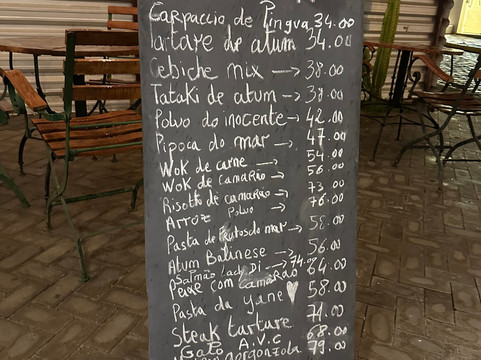 Carpaccio de Pingva 34.00
Tartare de atum 34.00
Cebiche mix → 38.00
Tataki de atum → 38.00
Polvo do inocente → 42.00
Pipoca do mar → 47.00
Wok de carne → 54.00
Wok de camarão → 56.00
Risotto de camarão → 73.00
Arroz Polvo → 76.00
Pasta de frutos do mar → 58.00
Atum Balinese → 56.00
Salmão Di → 74.00
Peixe com camarão 64.00
Pasta da yane 58.00
Steak tartare 71.00
Gato A.V.C 68.00
gorgonzola 79.00